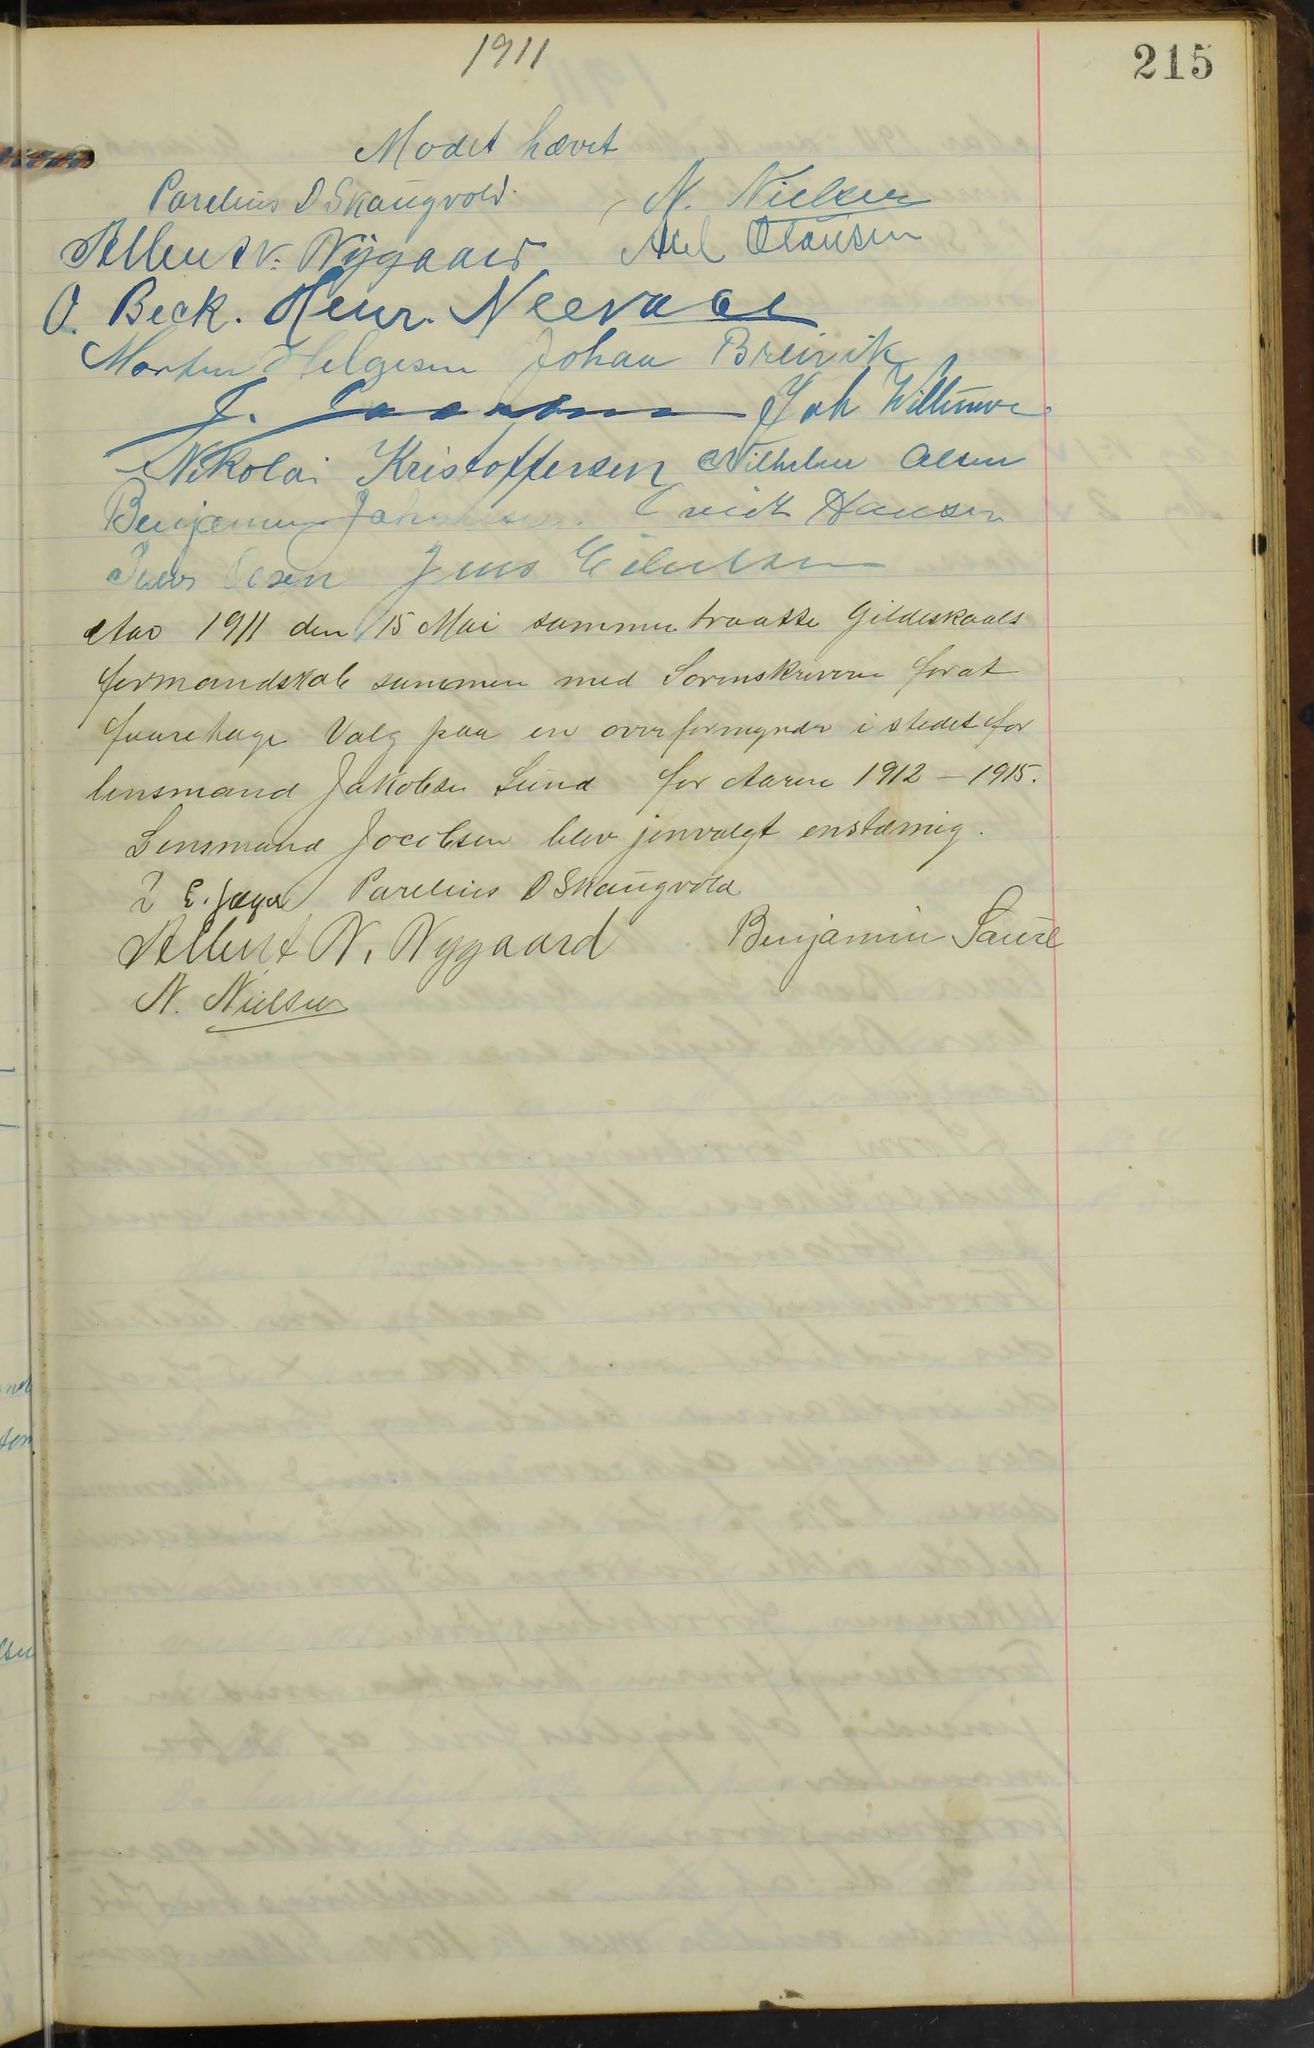 1911
215
Mødet hævet
Parelius D Skaugvold. N. Nielsen
Albert N. Nygaard Axel Olausen
O. Beck. Henr.
Morten Helgesen Johan Breivik
J. Joh
Nikolai Kristoffersen Vilhelm Olsen
Benjamin Hansen
Peder Olsen Jens
Aar 1911 den 15 Mai sammentraatte Gildeskaals
formandskab sammen med Sorenskriveren forat
foauretage Valg paa en overformynder i stedet for
lensmand Jakobsen Sund for Aarene 1912 – 1915.
Lensmand Jacobsen blev jenvalgt enstæmig.
E. Jæger Parelius D Skaugvold
Albert N. Nygaard Benjamin Saure
N. Nielsen